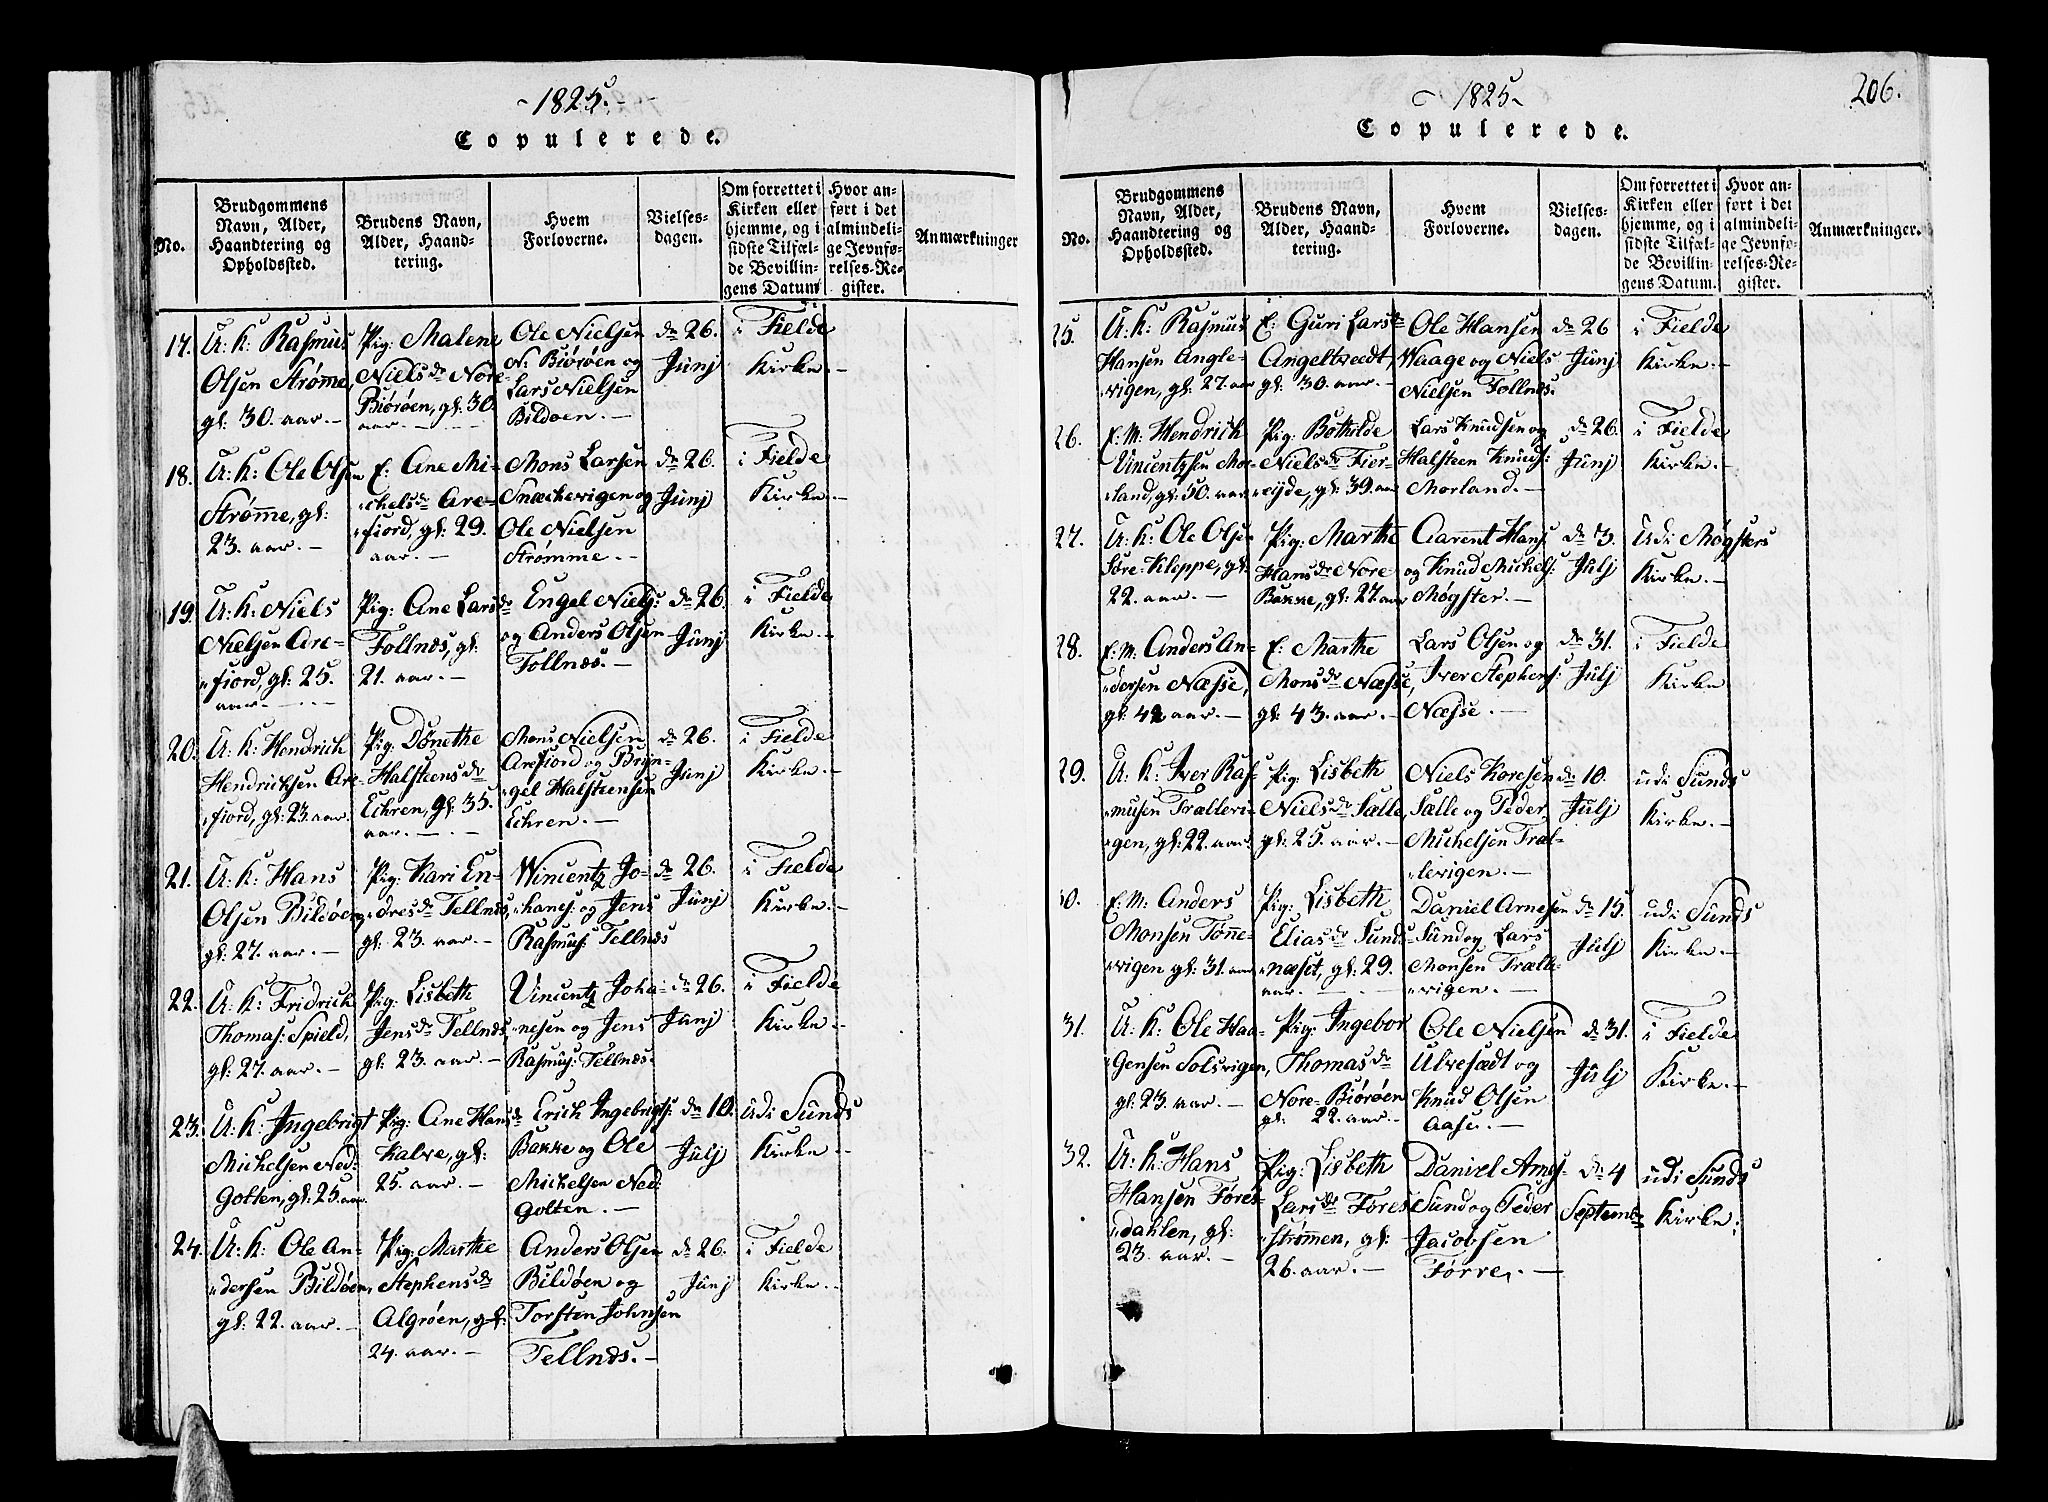 1825.
Copulerede.
No.
Brudgommens
Navn, Alder,
Haandtering og
Opholdssted.
Brudens Navn,
Alder, Haand-
tering.
Hvem
Forloverne.
Vielses-
dagen.
Om forrettet i
Kirken eller
hjemme, og i
sidste Tilfæl-
de Bevillin-
gens Datum
Hvor an-
ført i det
almindeli-
ge Jevnfø-
relses-Re-
gister.
Anmærkninger
17.
U: K: Rasmus
Olsen Strømme,
gl: 30. aar. —
Pig: Malene
Niels dr Nore
Biørøen, gl: 30.
aar. —
Ole Nielsen
N. Biørøen og
Lars Nielsen
Bildøen. —
dn 26.
Junj
i Fielde
Kirke. —
18.
U: K: Ole Olsen
Strømme, gl:
23. aar. —
E: Ane Mi-
chels dr Are-
fiord, gl: 29.
aar. —
Mons Larsen
Snæckevigen og
Ole Nielsen
Strømme. —
dn 26.
Junj
i Fielde
Kirke. —
19.
U: K: Niels
Nielsen Are-
fiord, gl: 25.
aar. —
Pig: Ane Lars dr
Follnæs, gl:
21. aar. —
Engel Niels:
og Anders Olsen
Follnæs. —
dn 26.
Junj
i Fielde
Kirke. —
20.
U: K: Hendrich
Hendrichsen Are-
fiord, gl: 23. aar.
Pig: Dønethe
Halsteens dr
Eckren, gl: 35.
aar. —
Mons Nielsen
Arefiord og Bryn-
gel Halsteensen
Eckren. —
dn 26.
Junj
i Fielde
Kirke. —
21.
U: K: Hans
Olsen Bildøen,
gl: 27. aar. —
Pig: Kari En-
dres dr Tellnæs,
gl: 23. aar. —
Wincentz Jo-
hanes: og Jens
Rasmus: Tellnæs
dn 26.
Junj
i Fielde
Kirke. —
22.
U: K: Fridrich
Thomas: Spield,
gl: 27. aar. —
Pig: Lisbeth
Jens dr Tellnæs,
gl: 23. aar. —
Vincentz Joha-
nesen og Jens
Rasmus: Tellnæs.
dn 26.
Junj
i Fielde
Kirke. —
23.
U: K: Ingebrigt
Michelsen Ned:
Golten, gl: 25. aar.
Pig: Ane Hans dr
Kalve, gl:
25. aar. —
Erich Ingebrigts:
Bakke og Ole
Michelsen Ned:
Golten. —
dn 10.
Julj
udi Sunds
Kirke. —
24.
U: K: Ole An-
dersen Bildøen,
gl: 22. aar. —
Pig: Marthe
Stephens dr
Algrøen, gl:
24. aar. —
Anders Olsen
Bildøen og
Torsten Johnsen
Tellnæs. —
dn 26.
Junj
i Fielde
Kirke. —
1825.
206.
Copulerede.
No.
Brudgommens
Navn, Alder,
Haandtering og
Opholdssted.
Brudens Navn,
Alder, Haand-
tering.
Hvem
Forloverne.
Vielses-
dagen.
Om forrettet i
Kirken eller
hjemme, og i
sidste Tilfæl-
de Bevillin-
gens Datum.
Hvor an-
ført i det
almindeli-
ge Jevnfø-
relses-Re-
gister.
Anmærkninger.
25.
U: K: Rasmus
Hansen Angle-
vigen, gl: 27. aar
E: Guri Lars dr
Angeltveedt,
gl: 30. aar. —
Ole Hansen
Waage og Niels
Nielsen Follnæs.
dn 26
Junj
i Fielde
Kirke. —
26.
E: M: Hendrich
Vincentzsen Mor-
land, gl: 50. aar
Pig: Bothilde
Niels dr Fier-
eijde, gl: 39. aar
Lars Knudsen og
Halsteen Knuds:
Morland. —
dn 26.
Junj
i Fielde
Kirke. —
27.
U: K: Ole Olsen
Søre-Kleppe, gl:
22. aar. —
Pig: Marthe
Hans dr Nore
Bakke, gl: 27. aar
Aarent Hans:
og Knud Michels:
Møgster. —
dn 3.
Julj
Udi Møgsters
Kirke. —
28.
E: M: Anders An-
dersen Næsse,
gl: 42 aar. —
E: Marthe
Mons dr Næsse,
gl: 43. aar. —
Lars Olsen og
Iver Stephens:
Næsse. —
dn 31.
Julj
i Fielde
Kirke
29.
U: K: Iver Ras-
musen Trællevi-
gen, gl: 22. aar.
Pig: Lisbeth
Niels dr Sælle,
gl: 25. aar. —
Niels Koresen
Sælle og Peder
Michelsen Træl-
levigen. —
dn 10.
Julj
udi Sunds
Kirke. —
30.
E: M: Anders
Monsen Tønne-
vigen gl: 31. aar
Pig: Lisbeth
Elias dr Sunds-
næset, gl: 29.
aar. —
Daniel Arnesen
Sund og Lars
Monsen Trælle-
vigen. —
dn 15.
Julj
udi Sunds
Kirke. —
31.
U: K: Ole Haa-
gensen Solsvigen,
gl: 23. aar. —
Pig: Ingebor
Thomas dr
Nore-Biørøen
gl: 22. aar. —
Ole Nielsen
Ulvesædt og
Knud Olsen
Aase. —
dn 31.
Julj
i Fielde
Kirke. —
32.
U: K: Hans
Hansen Føres-
dahlen, gl:
23. aar. —
Pig: Lisbeth
Lars dr Føres-
strømmen, gl:
26. aar. —
Daniel Arnes:
Sund og Peder
Jacobsen
Førre. —
dn 4
Septembr
udi Sunds
Kirke.